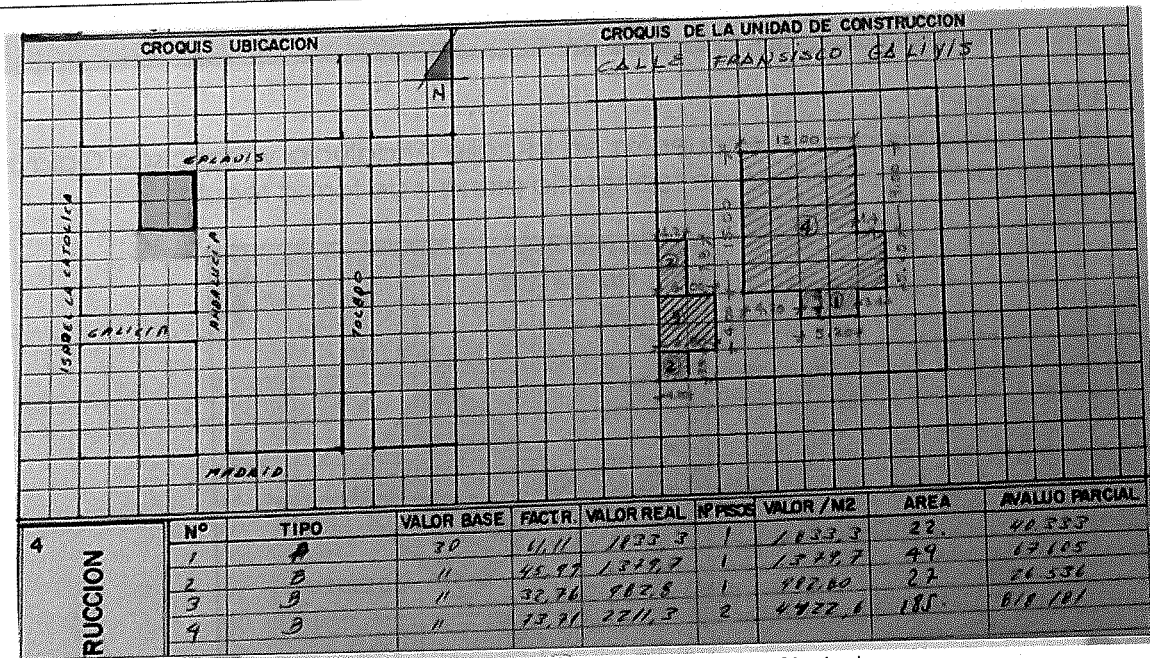 CROQUIS UBICACION
CROQUIS DE LA UNIDAD DE CONSTRUCCION
CALLE FRANSISCO GALIVIS
N
GALAVIS
ISABEL LA CATOLICA
ANDALUCIA
TOLEDO
GALICIA
MADRID
12,00
15,00
4
1
5,20
2
4
RUCCION
Nº TIPO VALOR BASE FACT.R. VALOR REAL Nº PISOS VALOR /M2 AREA AVALUO PARCIAL
1 A 30 61,11 1833 3 1 1833,3 22. 40 333
2 B " 45.99 1379,7 1 1379,7 49 67 605
3 B " 32,76 982.8 1 982.80 27 26 536
4 B " 73,71 2211,3 2 4422,6 185. 818 181